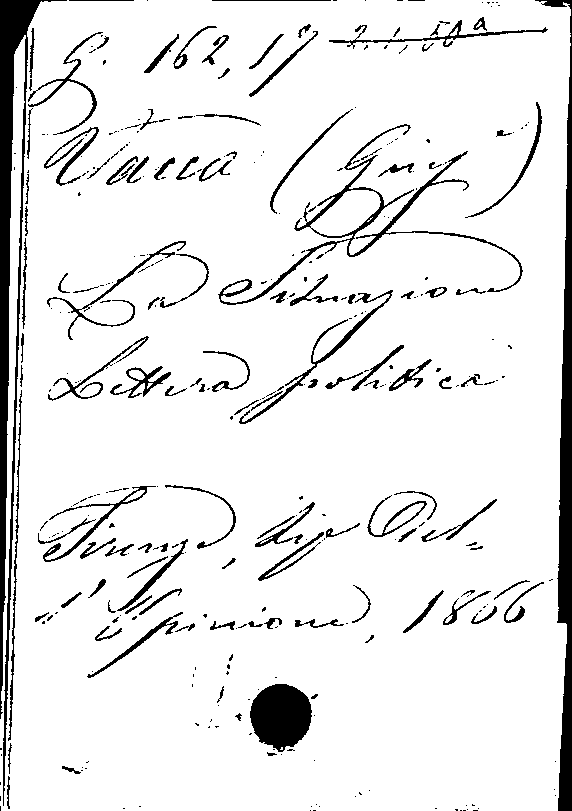 G. 162, 17 2.1,50a
Vacca (Gius)
La Situazione
Lettera politica
Firenze, tip Del=
l'Opinione, 1866